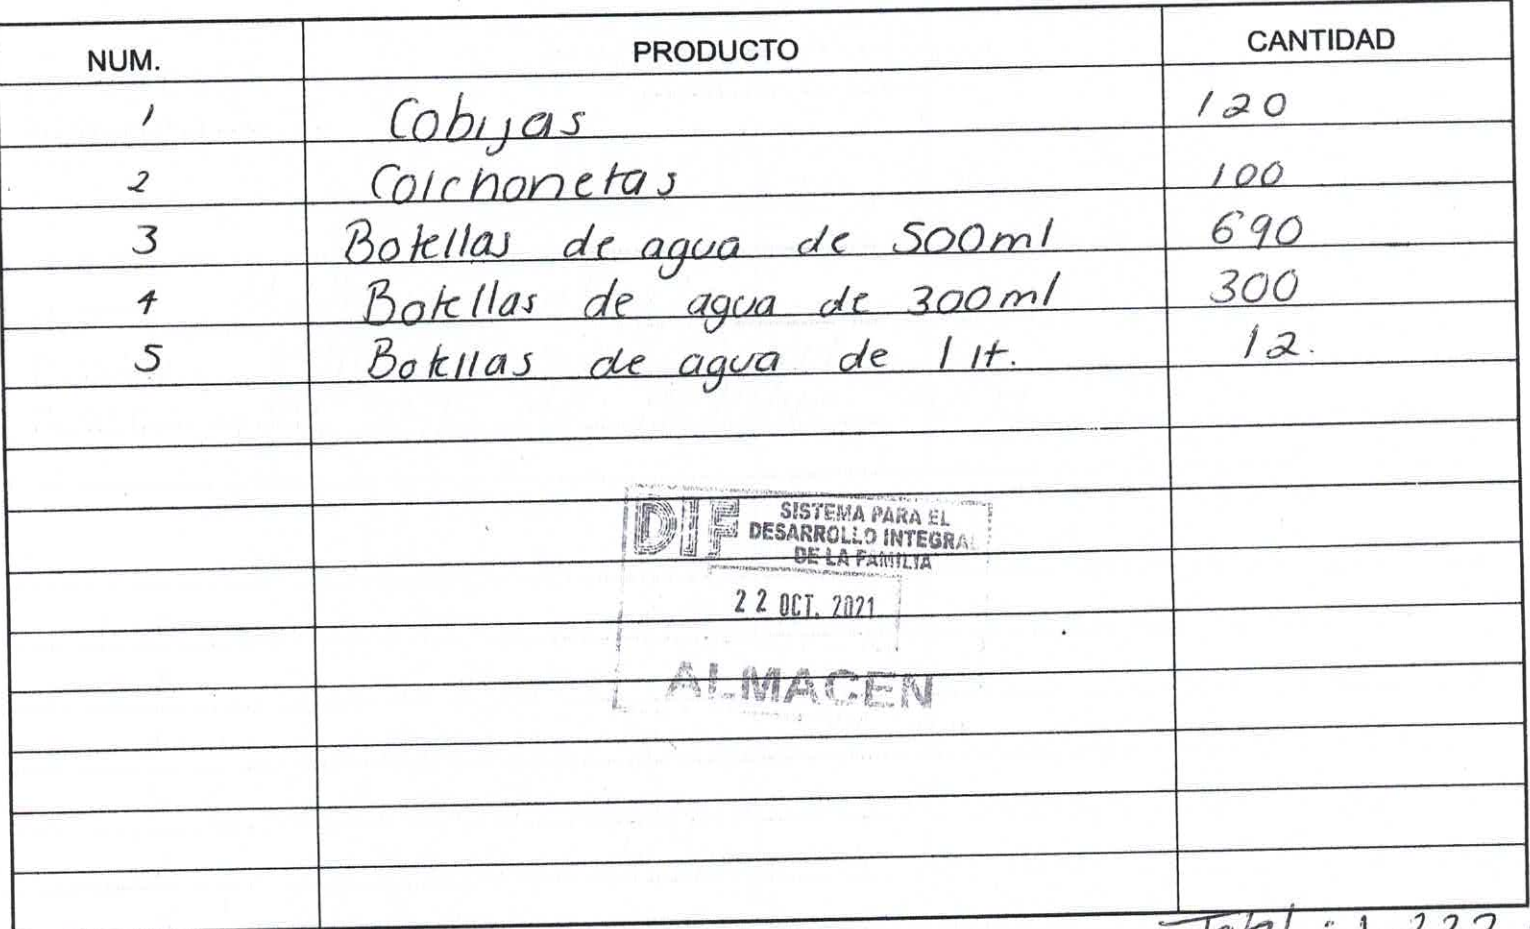 NUM. PRODUCTO CANTIDAD
1 Cobijas 120
2 Colchonetas 100
3 Botellas de agua de 500ml 690
4 Botellas de agua de 300ml 300
5 Botellas de agua de 1 lt. 12.
DIF SISTEMA PARA EL
DESARROLLO INTEGRAL
DE LA FAMILIA
22 OCT. 2021
ALMACEN
Total : 1,222